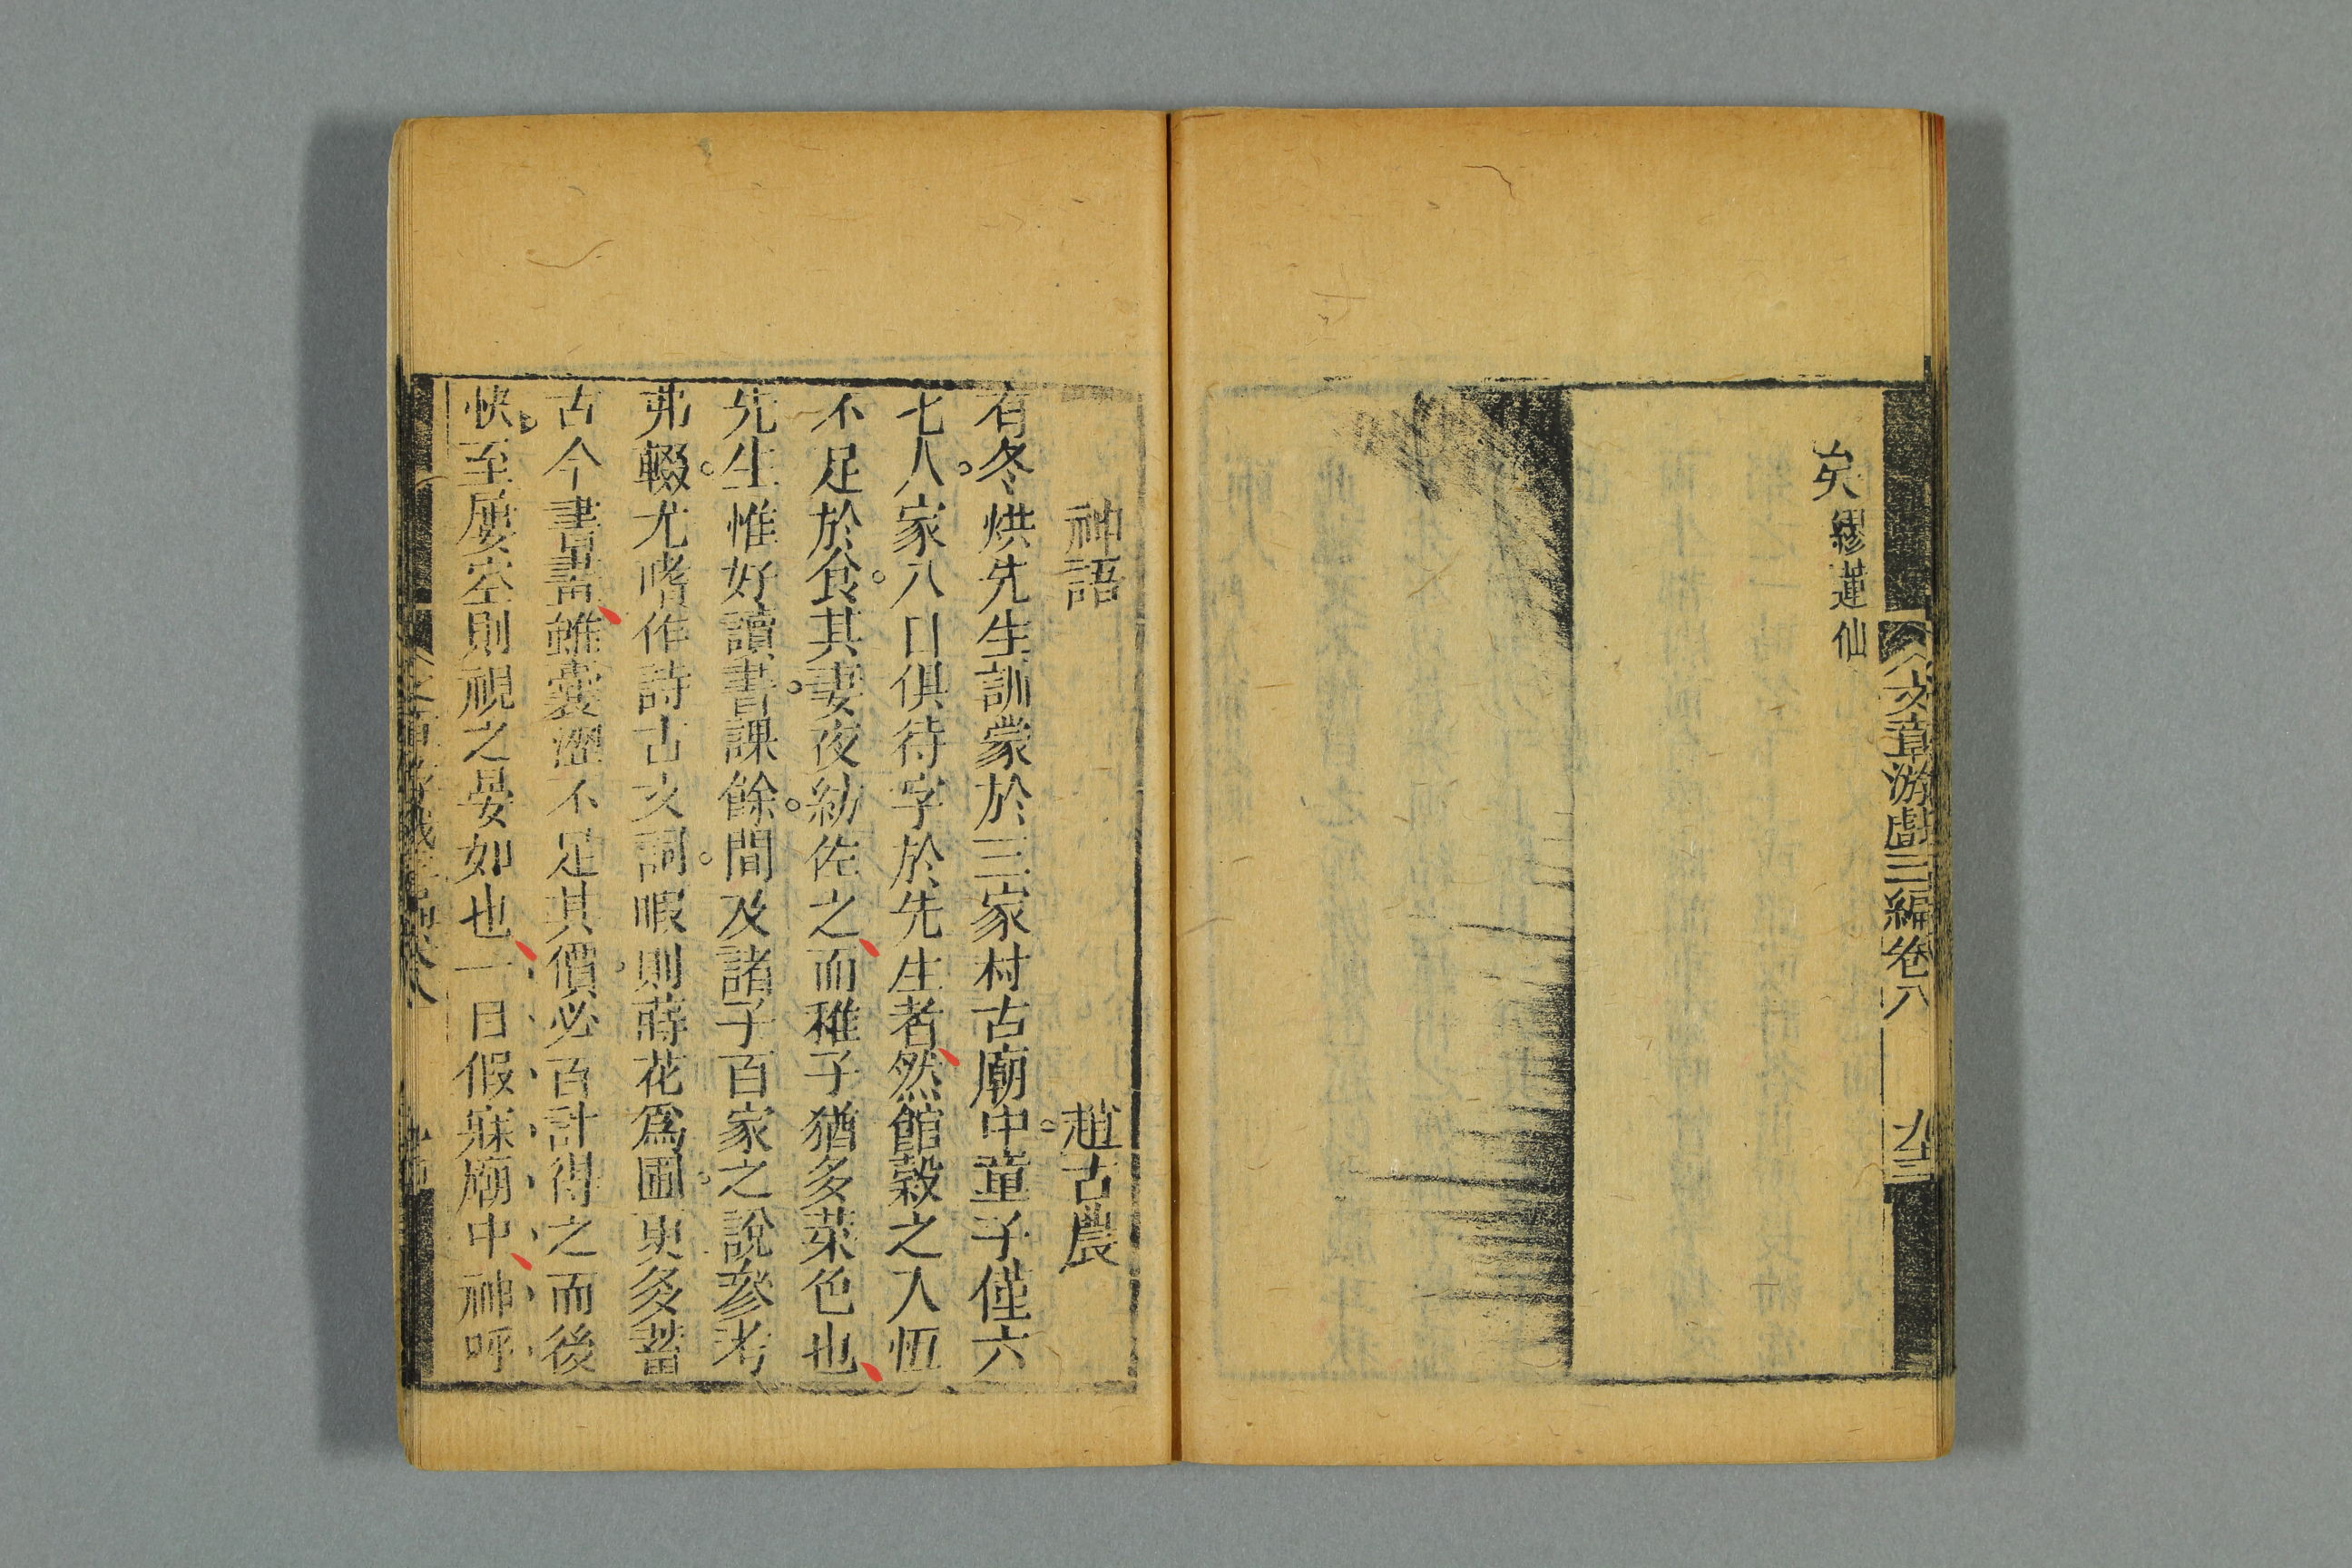 文章游戲三編卷八
九十三
矣繆蓮仙
神語 趙古農
有冬烘先生訓蒙於三家村古廟中童子僅六
七人家八口俱待字於先生者然館穀之入恆
不足於食其妻夜紡佐之而稚子猶多菜色也
先生惟好讀書課餘間及諸子百家之說參考
弗輟尤嗜作詩古文詞暇則蒔花爲圃更多蓄
古今書畫雖囊澀不足其價必百計得之而後
快至屢空則視之晏如也一日假寐廟中神呼